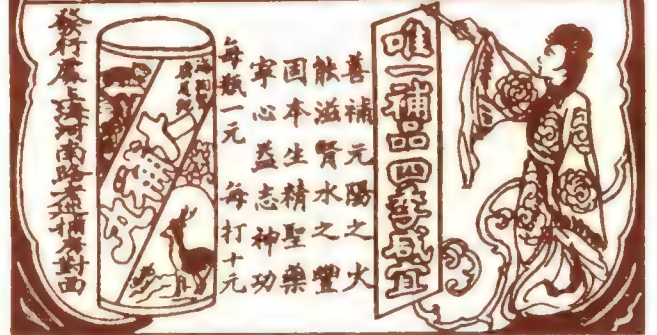 唯一補品四季咸宜
善補元陽之火
能滋腎水之豐
固本生精聖藥
寧心益志神功
每瓶一元 每打十元
發行處上海河南路捕房對面